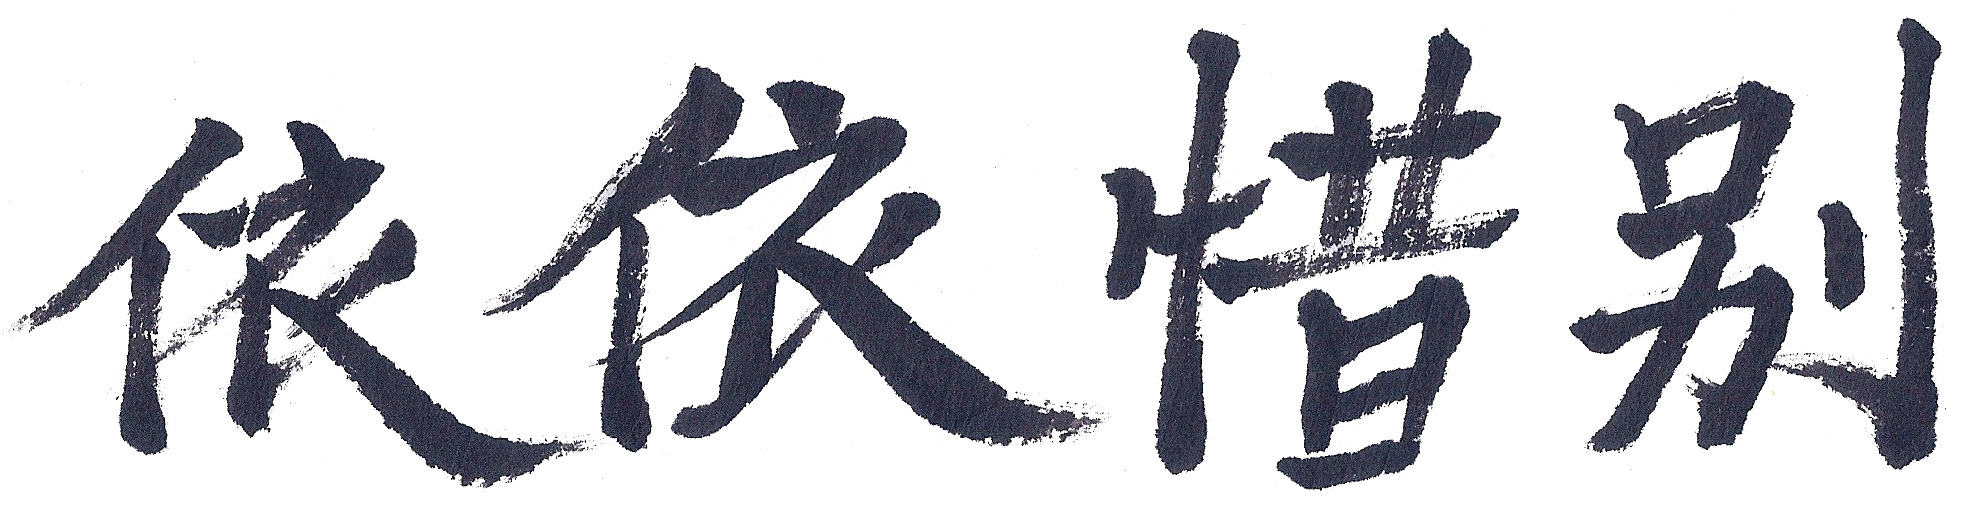 依依惜别